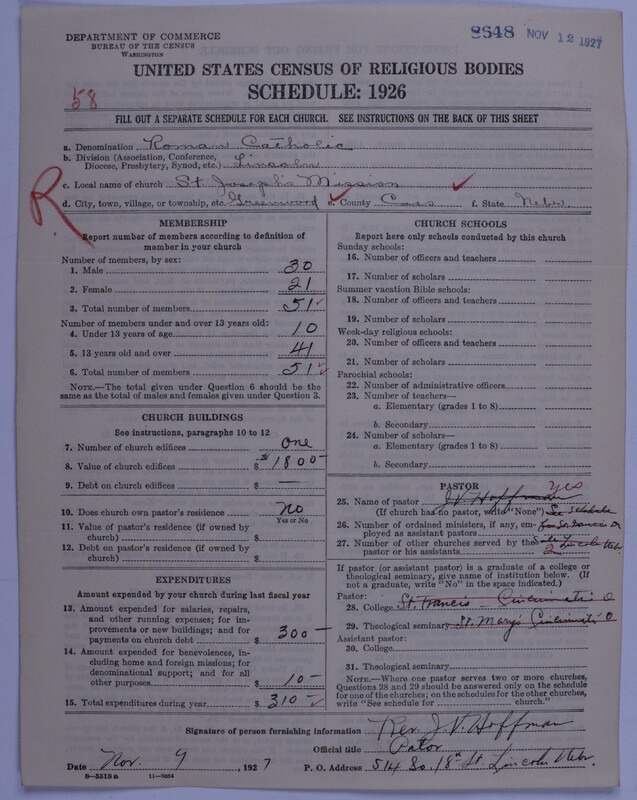 DEPARTMENT OF COMMERCE
BUREAU OF THE CENSUS
WASHINGTON
8648 NOV 12 1927
UNITED STATES CENSUS OF RELIGIOUS BODIES
SCHEDULE: 1926
58
FILL OUT A SEPARATE SCHEDULE FOR EACH CHURCH. SEE INSTRUCTIONS ON THE BACK OF THIS SHEET
a. Denomination Roman Catholic
b. Division (Association, Conference, Diocese, Presbytery, Synod, etc.) Lincoln
c. Local name of church St Joseph's Mission
R
d. City, town, village, or township, etc. Greenwood e. County Cass f. State Nebr.
MEMBERSHIP
Report number of members according to definition of
member in your church
Number of members, by sex:
1. Male 30
2. Female 21
3. Total number of members 51
Number of members under and over 13 years old:
4. Under 13 years of age 10
5. 13 years old and over 41
6. Total number of members 51
NOTE.—The total given under Question 6 should be the
same as the total of males and females given under Question 3.
CHURCH BUILDINGS
See instructions, paragraphs 10 to 12
7. Number of church edifices One
8. Value of church edifices $ 1800
9. Debt on church edifices $ —
10. Does church own pastor's residence? No
Yes or No
11. Value of pastor's residence (if owned by
church) $
12. Debt on pastor's residence (if owned by
church) $
EXPENDITURES
Amount expended by your church during last fiscal year
13. Amount expended for salaries, repairs,
and other running expenses; for im-
provements or new buildings; and for
payments on church debt $ 300
14. Amount expended for benevolences, in-
cluding home and foreign missions; for
denominational support; and for all
other purposes $ 10
15. Total expenditures during year $ 310
CHURCH SCHOOLS
Report here only schools conducted by this church
Sunday schools:
16. Number of officers and teachers
17. Number of scholars
Summer vacation Bible schools:
18. Number of officers and teachers
19. Number of scholars
Week-day religious schools:
20. Number of officers and teachers
21. Number of scholars
Parochial schools:
22. Number of administrative officers
23. Number of teachers—
a. Elementary (grades 1 to 8)
b. Secondary
24. Number of scholars—
a. Elementary (grades 1 to 8)
b. Secondary
PASTOR yes
25. Name of pastor J.V. Hoffman
(If church has no pastor, write "None") See Schedule
26. Number of ordained ministers, if any, em-
ployed as assistant pastors
27. Number of other churches served by the Lincoln Nebr.
pastor or his assistants 2
If pastor (or assistant pastor) is a graduate of a college or
theological seminary, give name of institution below. (If
not a graduate, write "No" in the space indicated.)
Pastor:
28. College St. Francis - Cincinnati O
29. Theological seminary St. Mary's Cincinnati O
Assistant pastor:
30. College
31. Theological seminary
NOTE.—Where one pastor serves two or more churches,
Questions 28 and 29 should be answered only on the schedule
for one of the churches; on the schedules for the other churches,
write "See schedule for church."
Signature of person furnishing information Rev. J.V. Hoffman
Official title Pator
Date Nov. 9, 1927 P. O. Address 514 So. 18th St. Lincoln Nebr.
8—5518a 11—9054